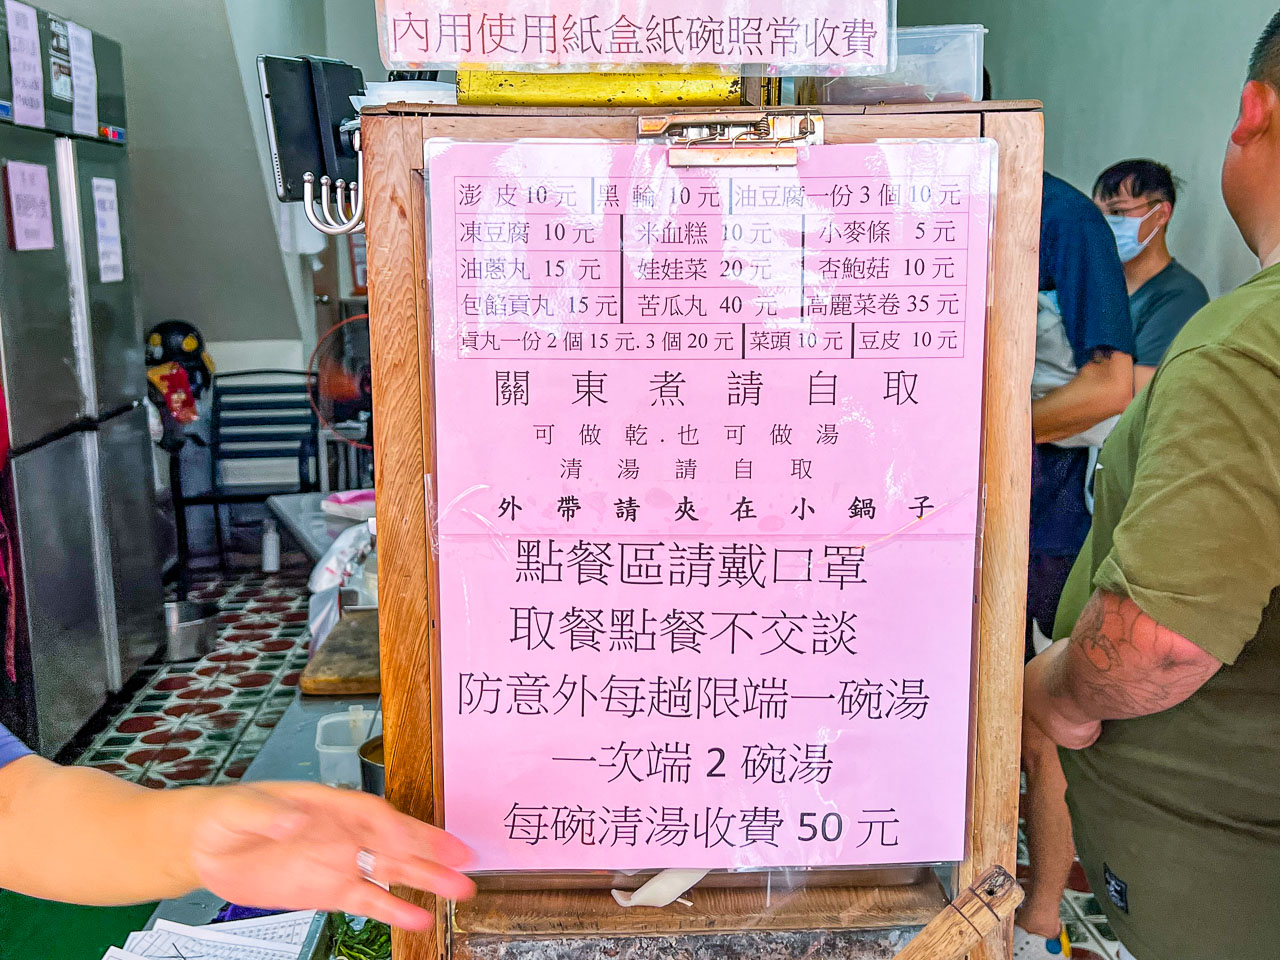 內用使用紙盒紙碗照常收費
澎皮10元 黑輪10元 油豆腐一份3個10元
凍豆腐10元 米血糕10元 小麥條5元
油蔥丸15元 娃娃菜20元 杏鮑菇10元
包餡貢丸15元 苦瓜丸40元 高麗菜卷35元
貢丸一份2個15元.3個20元 菜頭10元 豆皮10元
關東煮請自取
可做乾.也可做湯
清湯請自取
外帶請夾在小鍋子
點餐區請戴口罩
取餐點餐不交談
防意外每趟限端一碗湯
一次端2碗湯
每碗清湯收費50元